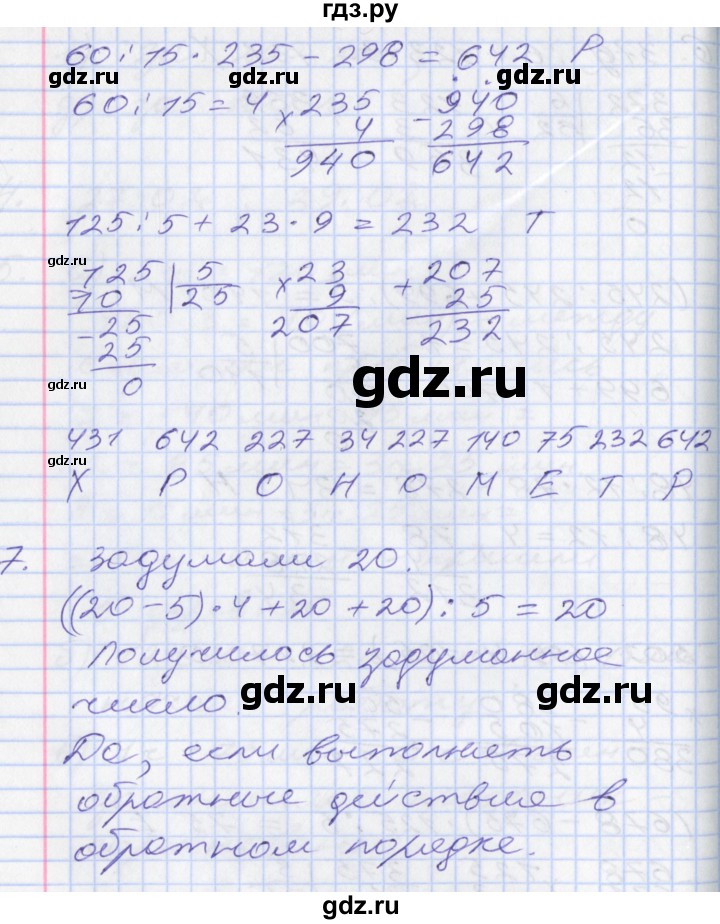 гдз.ру
60 : 15 · 235 - 298 = 642 Р
gdz.ru gdz.ru gdz.ru
60 : 15 = 4 × 235 - 940
4 298
940 642
125 : 5 + 23 · 9 = 232 Т
gdz.ru
-125 | 5 × 23 + 207
10 25 9 25
-25 207 232
25
gdz.ru gdz.ru
0
431 642 227 34 227 140 75 232 642
gdz.ru
Х Р О Н О М Е Т Р
7. Задумали 20.
((20 - 5) · 4 + 20 + 20) : 5 = 20
Получилось задуманное
gdz.ru gdz.ru
число.
Да, если выполнять
обратные действия в
обратном порядке.
gdz.ru